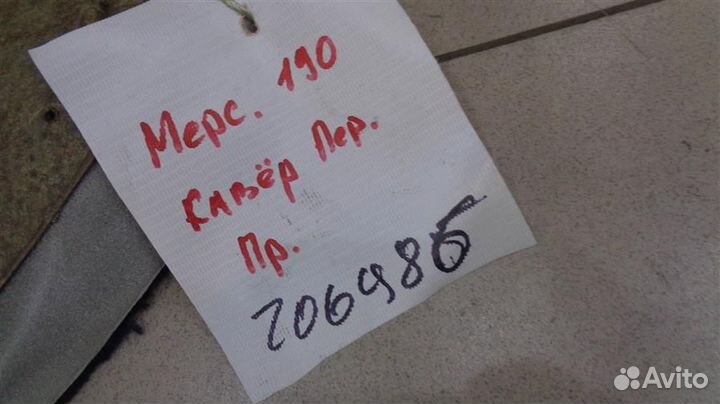 Мерс. 190
Кавёр Пер.
Пр.
2064985
Avito